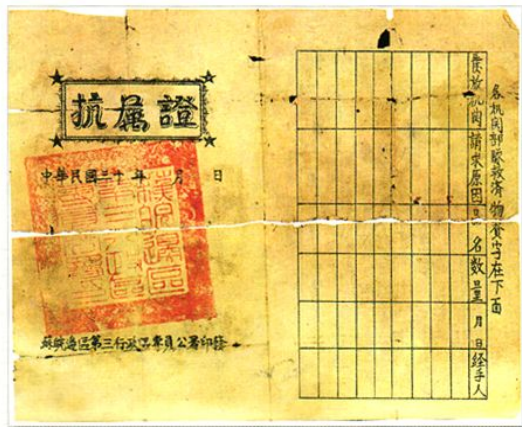 抗属證
中華民國三十年 月 日
蘇皖邊區第三行政區專員公署印發
各机関部隊救濟物資寫在下面
机関 請求原因 品名 数量 月 日 经手人